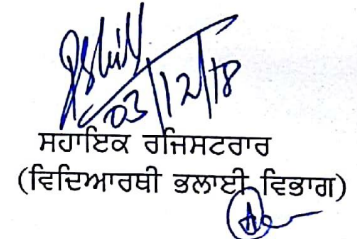 03/12/18
ਸਹਾਇਕ ਰਜਿਸਟਰਾਰ
(ਵਿਦਿਆਰਥੀ ਭਲਾਈ ਵਿਭਾਗ)